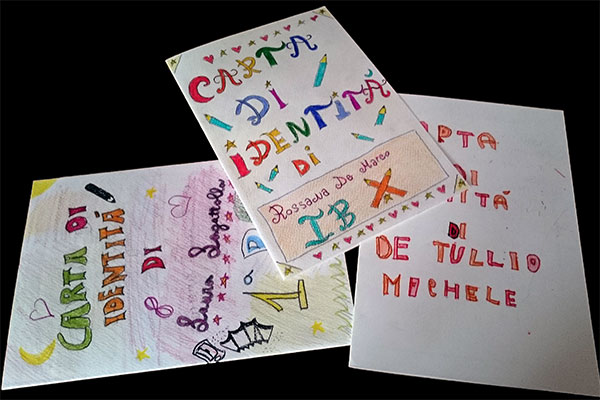 CARTA
DI
IDENTITÀ
DI
Rossana De Marco
I B
CARTA DI
IDENTITÀ
DI
Laura
1ª D
DI
DI
DE TULLIO
MICHELE